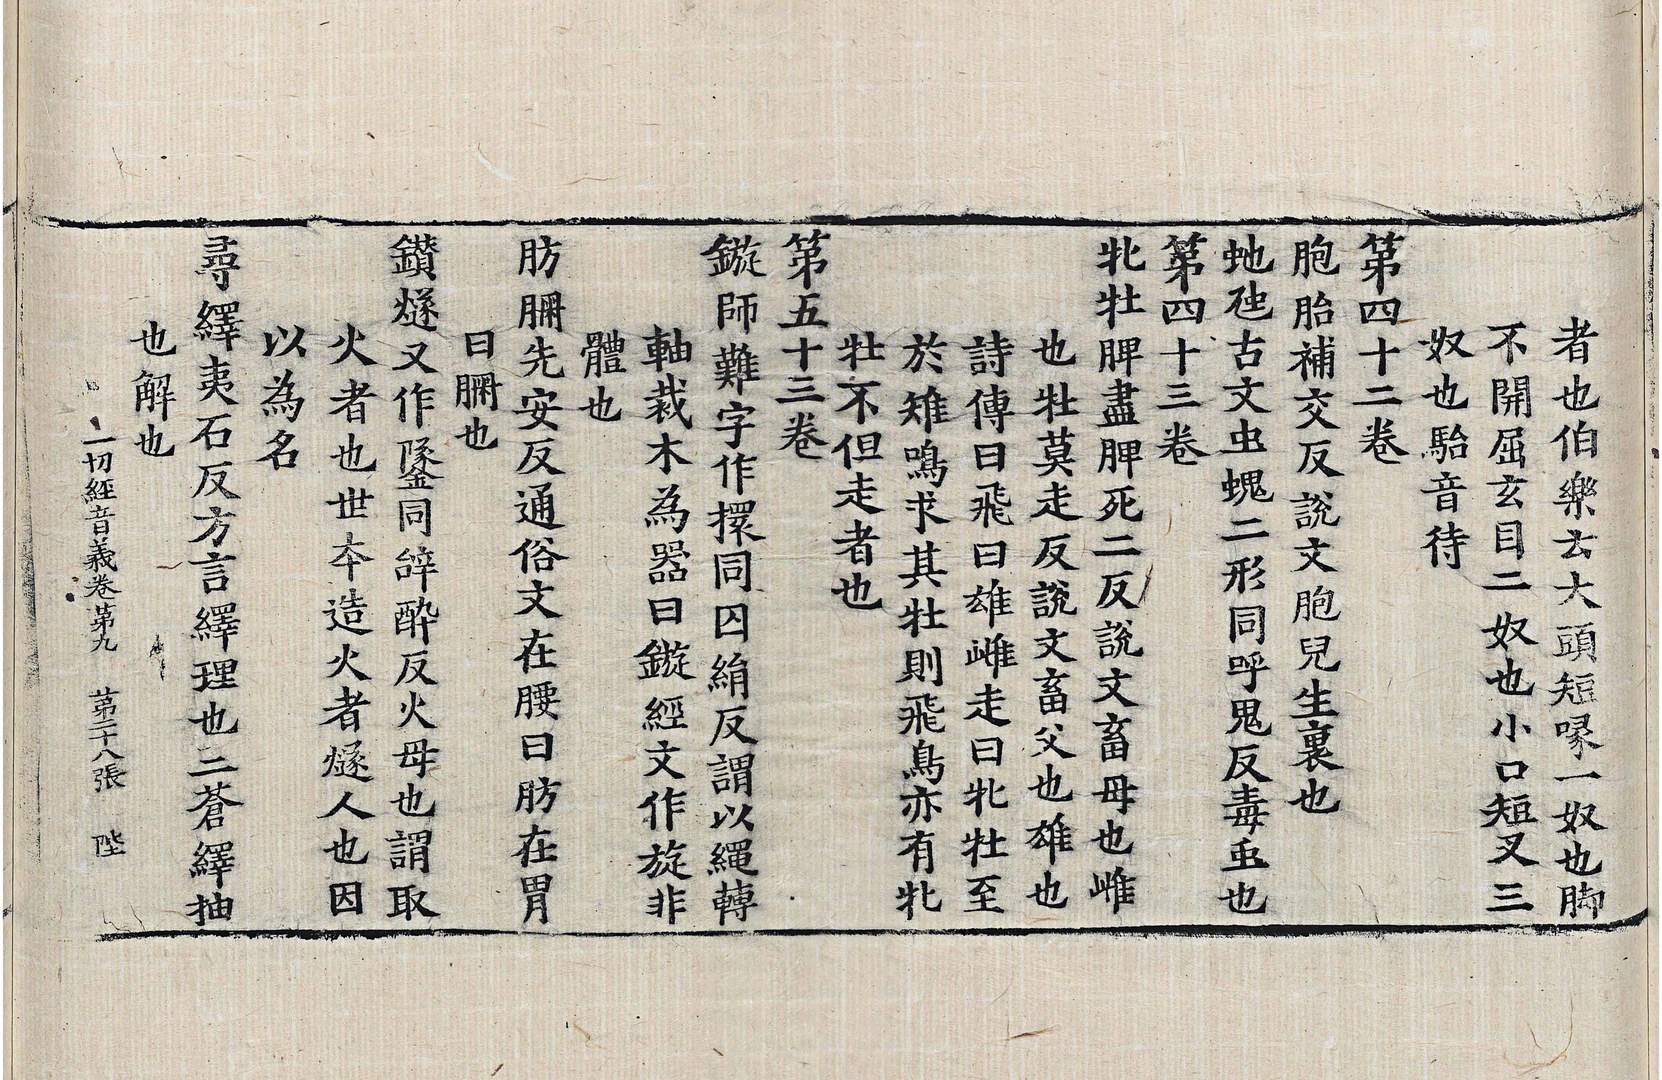 者也伯樂云大頭短喙一奴也脚
不開屈玄目二奴也小口短叉三
奴也駘音待
第四十二卷
胞胎補交反說文胞兒生裹也
虵虺古文虫螝二形同呼鬼反毒䖝也
第四十三卷
牝牡脾盡脾死二反說文畜母也雌
也牡莫走反說文畜父也雄也
詩傳曰飛曰雄雌走曰牝牡至
於雉鳴求其牡則飛鳥亦有牝
牡不但走者也
第五十三卷
鏇師難字作擐同囚絹反謂以繩轉
軸裁木為器曰鏇經文作旋非
體也
肪䐑先安反通俗文在腰曰肪在胃
曰䐑也
鑚燧又作鐆同辝醉反火母也謂取
火者也世夲造火者燧人也因
以為名
尋繹夷石反方言繹理也三蒼繹抽
也解也
一切經音義卷苐九 苐二十八張 陛